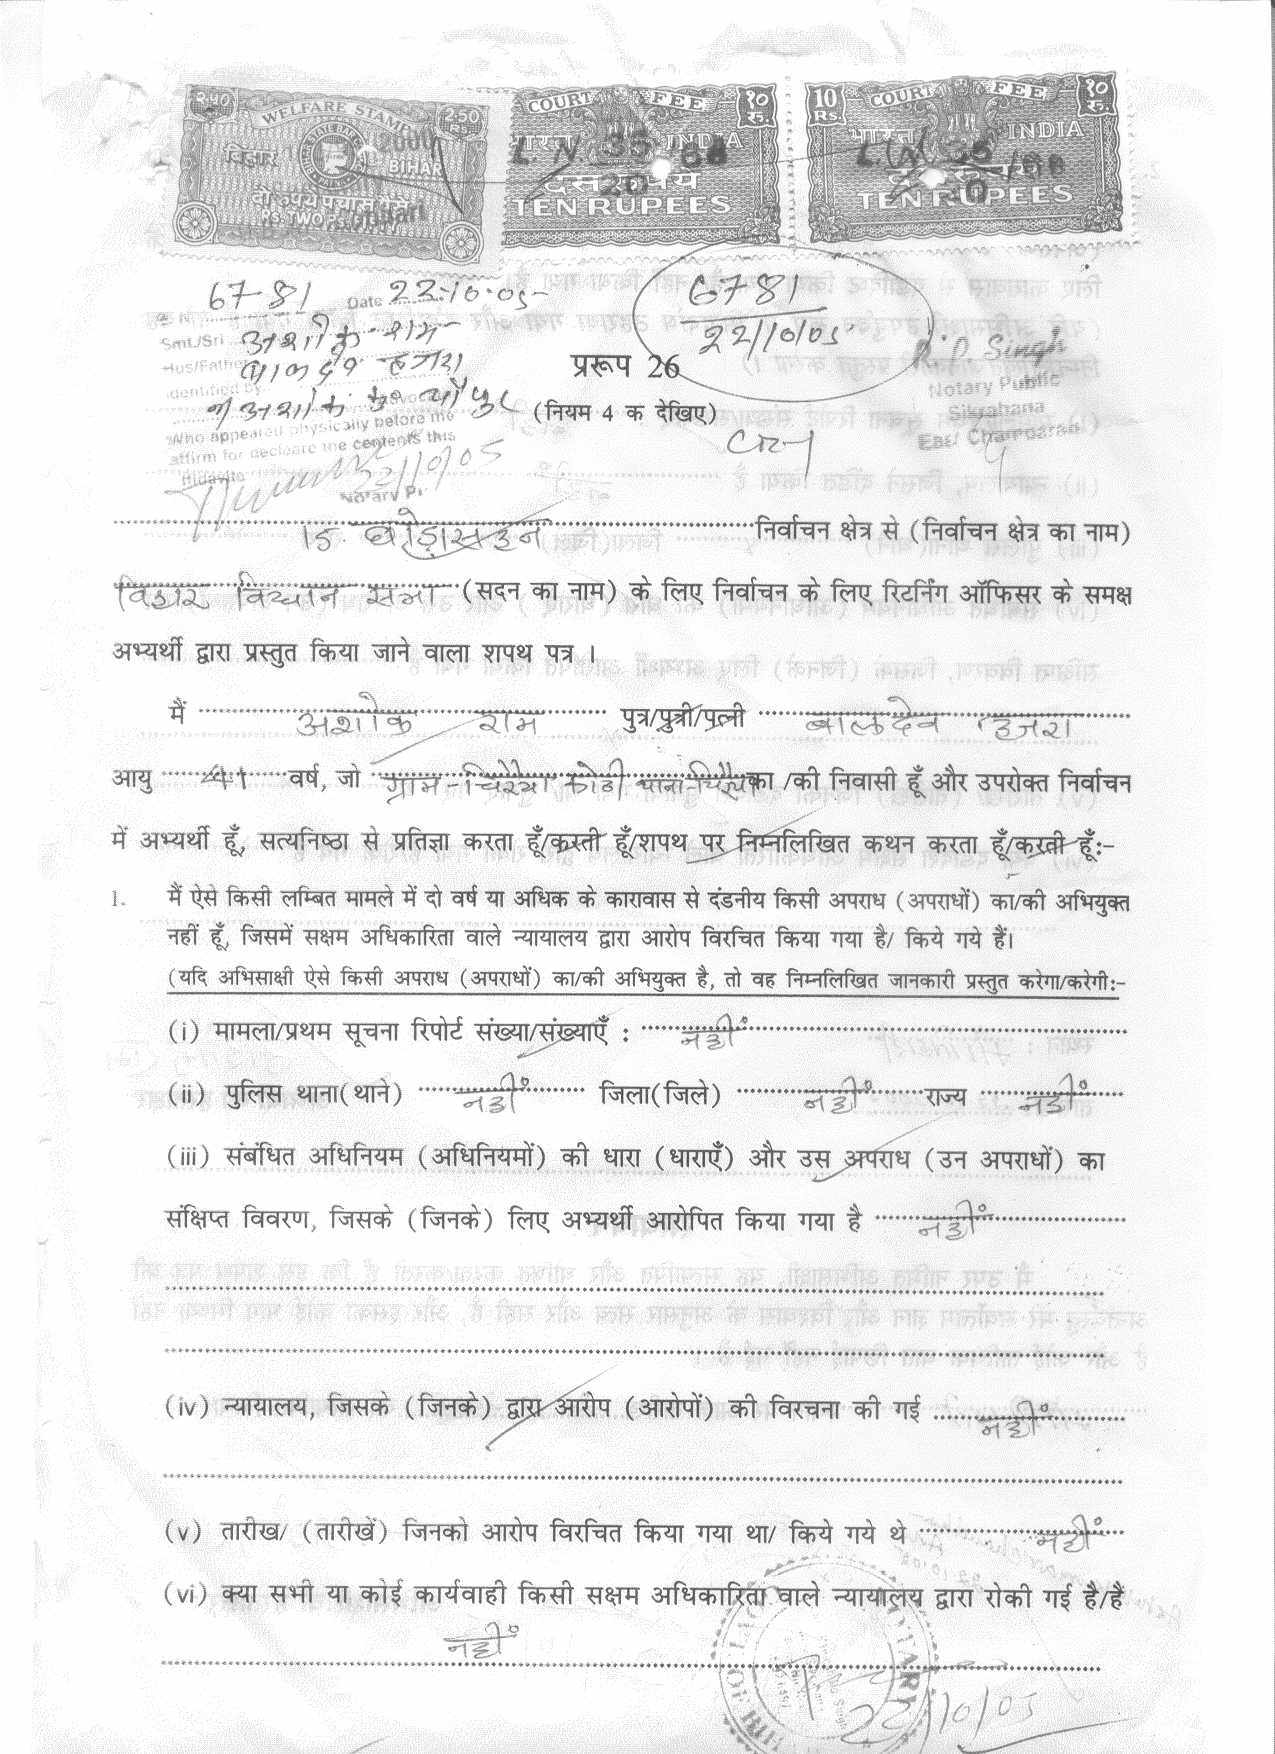 2.50 WELFARE STAMP 2.50
बिहार BIHAR
दो रुपये पचास पैसे
COURT FEE १० रु.
भारत INDIA
L. N. 35
दस रुपये
TEN RUPEES
10 Rs. COURT FEE १० रु.
भारत INDIA
दस रुपये
TEN RUPEES
6781 Date 22.10.05
Smt./Sri अशोक राम
Hus/Father बालदेव हजरा
Identified by
Who appeared physically before me
affirm for decleare the contents this
22/10/05
Notary P
6781
22/10/05
R.P. Singh
Notary Public
Sikrahana
East Champaran
प्ररूप 26
(नियम 4 क देखिए)
15 घोड़ासहन निर्वाचन क्षेत्र से (निर्वाचन क्षेत्र का नाम)
बिहार विधान सभा (सदन का नाम) के लिए निर्वाचन के लिए रिटर्निंग ऑफिसर के समक्ष
अभ्यर्थी द्वारा प्रस्तुत किया जाने वाला शपथ पत्र ।
मैं अशोक राम पुत्र/पुत्री/पत्नी बालदेव हजरा
आयु 41 वर्ष, जो ग्राम-चिरैया कोठी थाना-चिरैया का /की निवासी हूँ और उपरोक्त निर्वाचन
में अभ्यर्थी हूँ, सत्यनिष्ठा से प्रतिज्ञा करता हूँ/करती हूँ/शपथ पर निम्नलिखित कथन करता हूँ/करती हूँ:-
1. मैं ऐसे किसी लम्बित मामले में दो वर्ष या अधिक के कारावास से दंडनीय किसी अपराध (अपराधों) का/की अभियुक्त
नहीं हूँ, जिसमें सक्षम अधिकारिता वाले न्यायालय द्वारा आरोप विरचित किया गया है/ किये गये हैं।
(यदि अभिसाक्षी ऐसे किसी अपराध (अपराधों) का/की अभियुक्त है, तो वह निम्नलिखित जानकारी प्रस्तुत करेगा/करेगी:-
(i) मामला/प्रथम सूचना रिपोर्ट संख्या/संख्याएँ : नहीं
(ii) पुलिस थाना(थाने) नहीं जिला(जिले) नहीं राज्य नहीं
(iii) संबंधित अधिनियम (अधिनियमों) की धारा (धाराएँ) और उस अपराध (उन अपराधों) का
संक्षिप्त विवरण, जिसके (जिनके) लिए अभ्यर्थी आरोपित किया गया है नहीं
(iv) न्यायालय, जिसके (जिनके) द्वारा आरोप (आरोपों) की विरचना की गई नहीं
(v) तारीख/ (तारीखें) जिनको आरोप विरचित किया गया था/ किये गये थे नहीं
(vi) क्या सभी या कोई कार्यवाही किसी सक्षम अधिकारिता वाले न्यायालय द्वारा रोकी गई है/है
नहीं
22/10/05